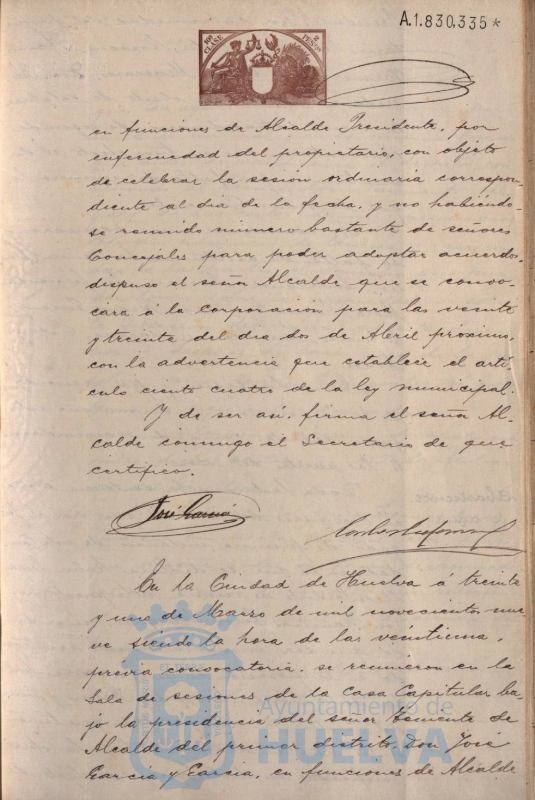 A.1.830.335*
10ª CLASE
2 PESETAS
en funciones de Alcalde Presidente, por
enfermedad del propietario, con objeto
de celebrar la sesión ordinaria correspon-
diente al dia de la fecha, y no habiendo-
se reunido número bastante de señores
Concejales para poder adoptar acuerdo,
dispuso el señor Alcalde que se convo-
cara á la Corporación para las veinte
y treinta del dia dos de Abril próximo,
con la advertencia que establece el artí
culo ciento cuatro de la ley municipal.
Y de ser así, firma el señor Al-
calde conmigo el Secretario de que
certifico.
José García
En la Ciudad de Huelva á treinta
y uno de Marzo de mil novecientos nue-
ve siendo la hora de las veintiuna,
previa convocatoria, se reunieron en la
Sala de sesiones de la Casa Capitular ba-
jo la presidencia del señor Teniente de
Alcalde del primer distrito, Don José
García y García, en funciones de Alcalde
Ayuntamiento de
HUELVA